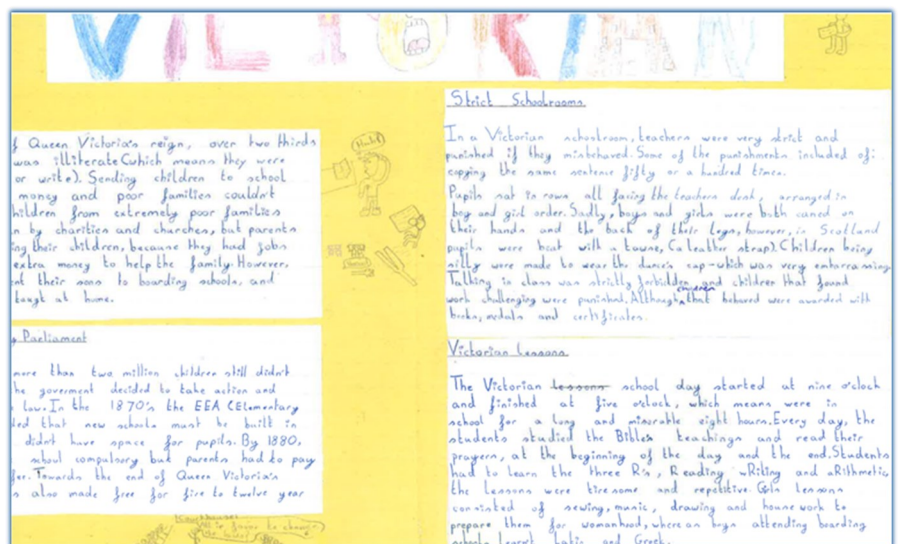 VICTORIAN
f Queen Victoria's reign, over two thirds
was illiterate (which means they were
or write). Sending children to school
money and poor families couldn't
hildren from extremely poor families
n by charities and churches, but parents
ing their children, because they had jobs
extra money to help the family. However,
nt their sons to boarding schools, and
taught at home.
Parliament
more than two million children still didn't
he goverment decided to take action and
law. In the 1870's the EEA (Elementary
ded that new schools must be built in
didn't have space for pupils. By 1880,
school compulsory but parents had to pay
fer. Towards the end of Queen Victoria's
s also made free for five to twelve year
Strict Schoolrooms
In a Victorian schoolroom, teachers were very strict and
punished if they misbehaved. Some of the punishments included of:
copying the same sentence fifty or a hundred times.
Pupils sat in rows all facing the teachers desk, arranged in
boy and girl order. Sadly, boys and girls were both caned on
their hands and the back of their legs, however, in Scotland
pupils were beat with a towne, (a leather strap). Children being
silly were made to wear the dunce's cap-which was very embarrassing.
Talking in class was strictly forbidden and children that found
work challenging were punished. Although, that behaved were awarded with
books, medals and certificates.
Victorian Lessons
The Victorian lessons school day started at nine o'clock
and finished at five o'clock, which means were in
school for a long and miserable eight hours. Every day, the
students studied the Bible's teachings and read their
prayers, at the beginning of the day and the end. Students
had to learn the three R's, Reading, wRiting and aRithmetic
the lessons were tiresome and repetitive. Girls lessons
consisted of sewing, music, drawing and housework to
prepare them for womanhood, whereas boys attending boarding
schools learnt Latin and Greek.